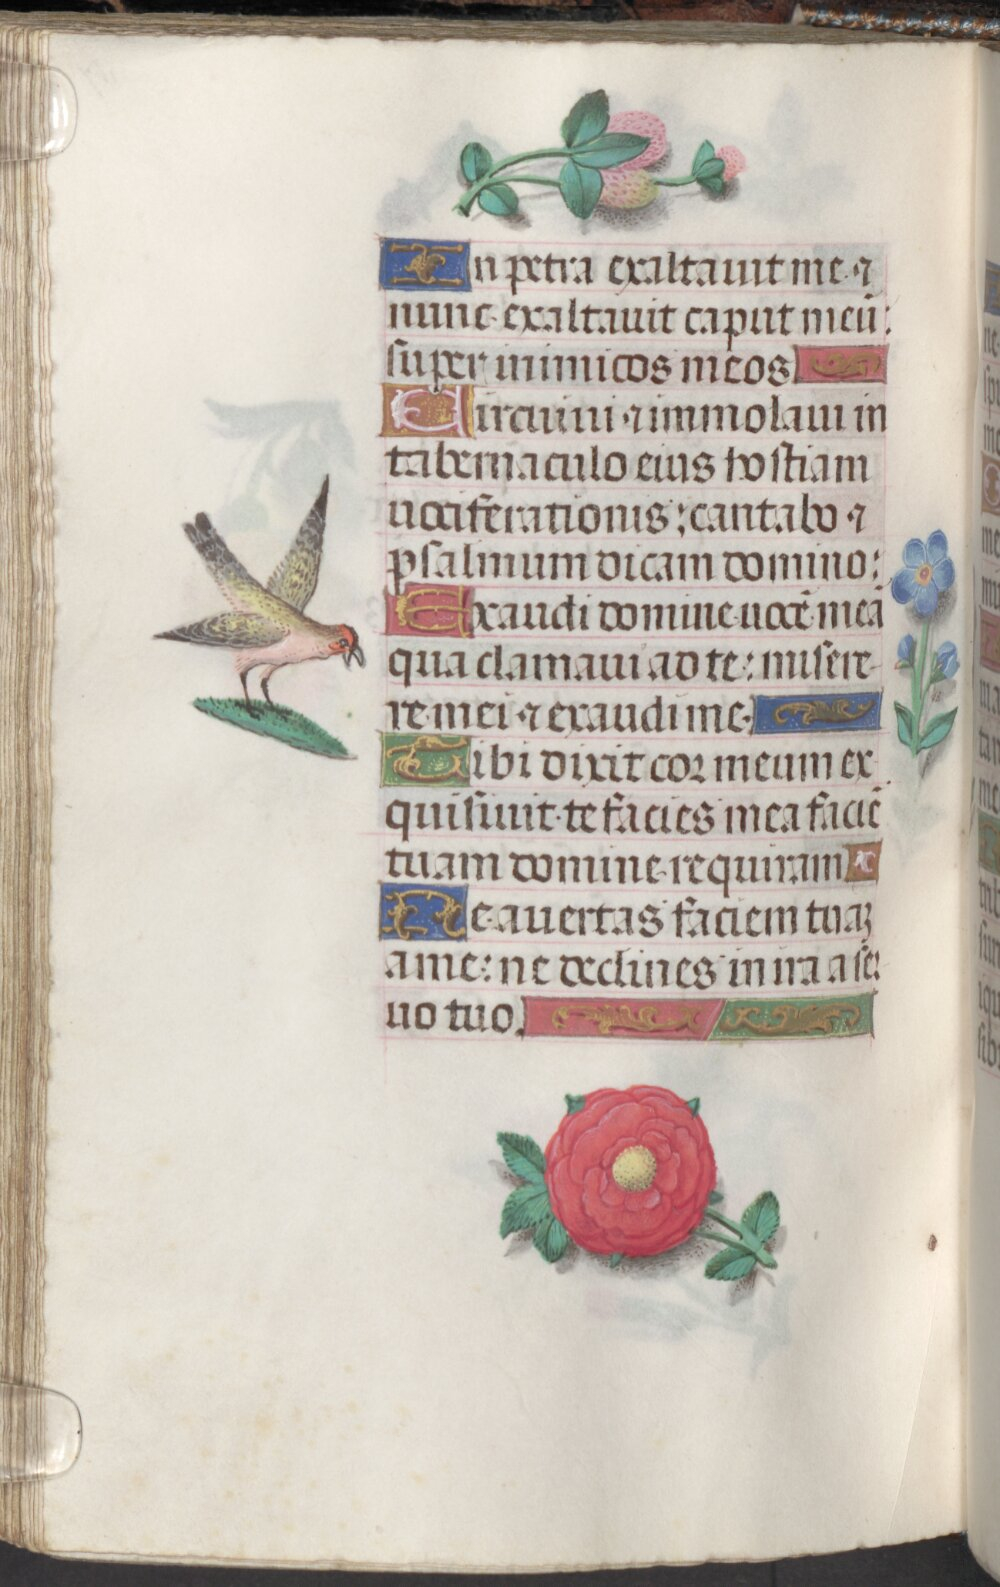 In petra exaltauit me · ⁊
nunc exaltauit caput meū:
super inimicos meos
Circuiui ⁊ immolaui in
tabernaculo eius hostiam
uociferationis: cantabo ⁊
psalmum dicam domino:
Exaudi domine uocē meā
qua clamaui ad te: misere-
re mei ⁊ exaudi me.
Tibi dixit cor meum ex
quisiuit te facies mea faciē
tuam domine requiram
Ne auertas faciem tuaꝫ
a me: ne declines in ira a ser
uo tuo.